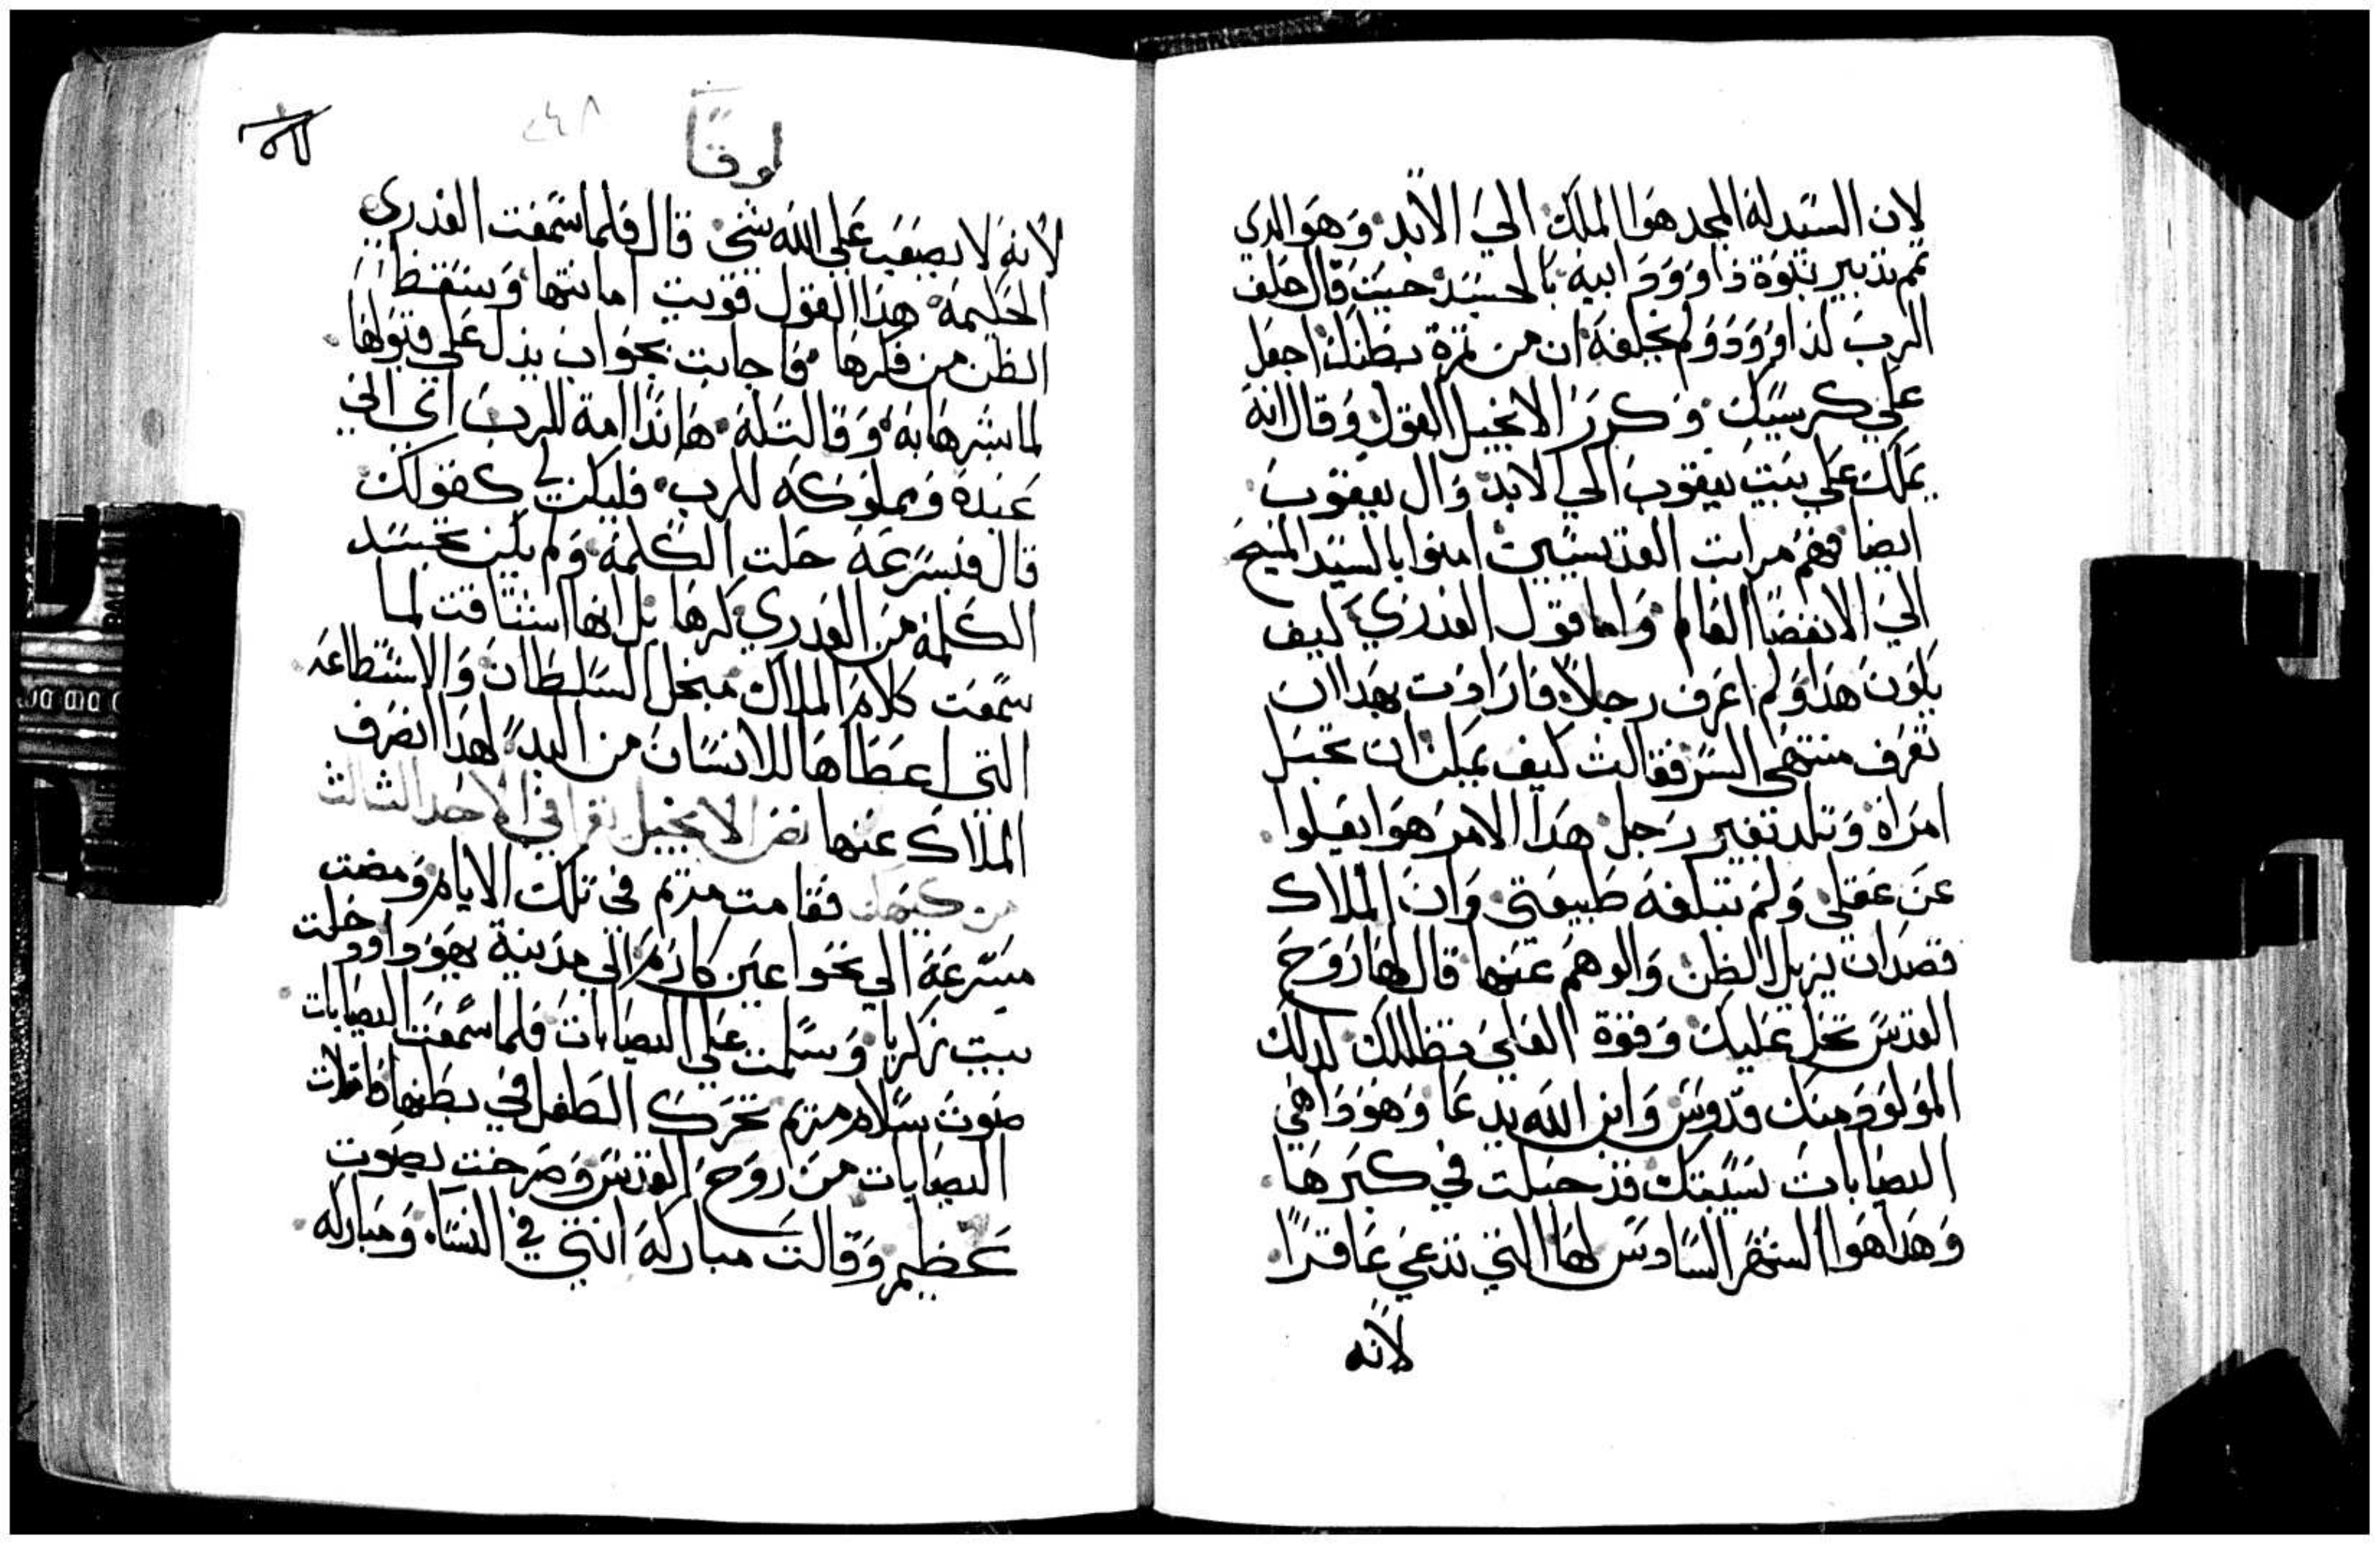 لان السيد له المجد هوا الملك الي الابد وهو الدي
تم تدبير نبوة داوود ابيه بالجسد حيت قال حلف
الرب لداوود ولم يخلفه ان من تمرة بطنك اجعل
علي كرسيك وكرر الانجيل القول وقال انه
يملك علي بيت يعقوب الي الابد وال يعقوب
ايضا فهم مراتب القديسين امنوا بالسيد المسيح
الي الانقضا العالم واما قول العدري كيف
يكون هدا ولم اعرف رجلا فارادت بهدا ان
تعرف منتهي السر فقالت كيف يمكن ان تحبل
امراة وتلد بغير رجل هدا الامر هوا يعلوا
عن عقلي ولم تبلغه طبيعتي وان الملاك
قصد ان يزيل الظن والوهم عنها قال لها روح
القدس تحل عليك وقوة العلي تظللك لدلك
المولود منك قدوس وابن الله يدعا وهودا هي
اليصابات نسيبتك قد حبلت في كبرها
وهدا هوا الشهر السادس لها التي تدعي عاقرا
لانه
لوقا
٢٤٨
لانه لا يصعب علي الله شي قال فلما سمعت العدري
الحكيمه هدا القول قويت امانتها وسقط
الظن من فكرها فاجابت بجواب يدل علي قبولها
لما بشرها به وقالت له هاندا امة للرب اي اني
عبدة ومملوكه للرب فليكن لي كقولك
قال فبسرعة حلت الكلمة ولم يكن تجسد
الكلمة من العدري كرها بل انها اشتاقت لما
سمعت كلام الملاك مبجل السلطان والاستطاعه
التي اعطاها للانسان من البدء لهدا انصرف
الملاك عنها نص الانجيل يقرا في الاحد الثالث
من كيهك فقامت مريم في تلك الايام ومضت
مسرعة الي نحوا عين كارم الي مدينة يهودا ودخلت
بيت زكريا وسلمت علي اليصابات فلما سمعت اليصابات
صوت سلام مريم تحرك الطفل في بطنها فامتلات
اليصابات من روح القدس وصرخت بصوت
عظيم وقالت مباركة انتي في النساء ومباركه